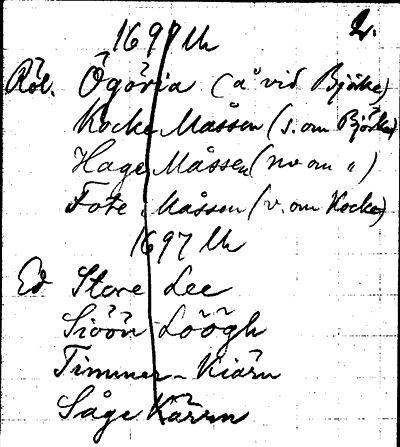 1697 Uh
2.
Röl. Ögöria (å vid Björke)
Kocke Måssen (s. om Björke)
Hage Måssen (nv om „)
Fote Måssen (v. om Kocke)
1697 Uh
Ed Store Lee
Siöön Löögh
Timmer-Kiärn
Såge Kärrn